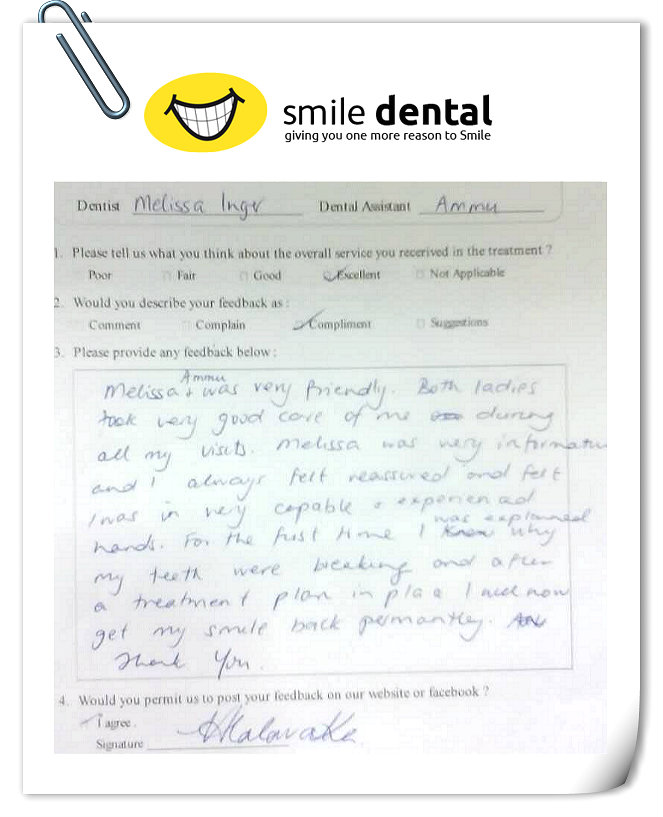 smile dental
giving you one more reason to Smile
Dentist Melissa Dental Assistant Ammu
1. Please tell us what you think about the overall service you recerived in the treatment ?
Poor Fair Good Excellent Not Applicable
2. Would you describe your feedback as :
Comment Complain Compliment Suggestions
3. Please provide any feedback below :
Ammu
Melissa + was very friendly. Both ladies
took very good care of me during
all my visits. Melissa was very
and I always felt reassured and felt
I was in very capable + experienced
was explained
hands. For the first time I why
my teeth were breaking and after
a treatment plan in place I will now
get my smile back permantley.
Thank You.
4. Would you permit us to post your feedback on our website or facebook ?
I agree .
Signature